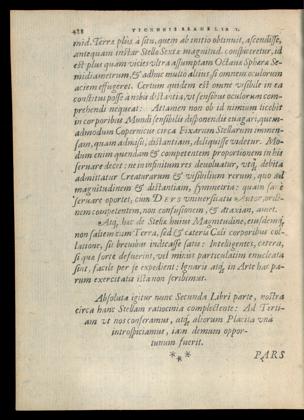 488 TYCHONIS BRAHE LIB. I.
mid. Terræ plus à situ, quem ab initio obtinuit, ascendisse,
antequam instar Stellæ Sextæ magnitud. conspiceretur, id
est plus quam vicies vltra assumptam Octauæ Sphæræ Se-
midiametrum, & adhuc multò altius si omnem oculorum
aciem effugeret. Certum quidem est omne visibile in ea
constitui posse à nobis distantia, vt sensibus oculorum com-
prehendi nequeat: Attamen non ob id nimium licebit
in corporibus Mundi sensibilib disponendis euagari, quem-
admodum Copernicus circa Fixarum Stellarum immen-
sam, quam admisit, distantiam, deliquisse videtur. Mo-
dum enim quendam & competentem proportionem in his
seruare decet: ne in infinitum res deuoluatur, vtq, debita
admittatur Creaturarum & visibilium rerum, quo ad
magnitudinem & distantiam, symmetria: quam
seruare oportet, cùm DEUS vniuersitatis Autor, ordi-
nem competentem, non confusionem, & ataxian, amet.
Atq, hæc de Stellæ huius Magnitudine, eiusdemq,
non saltem cum Terra, sed & cæteris Cœli corporibus col-
latione, sic breuibus indicasse satis: Intelligentes, cætera,
si qua fortè desuerint, vel minùs particulatim enucleata
sint, facilè per se expedient: Ignaris atq, in Arte hac pa-
rum exercitata ista non scribimus.
Absoluta igitur nunc Secunda Libri parte, nostra
circa hanc Stellam ratocinia complectente: Ad Terti-
am vt nos conferamus, atq, aliorum Placita vnà
introspiciamus, iam demum oppor-
tunum fuerit.
***
PARS